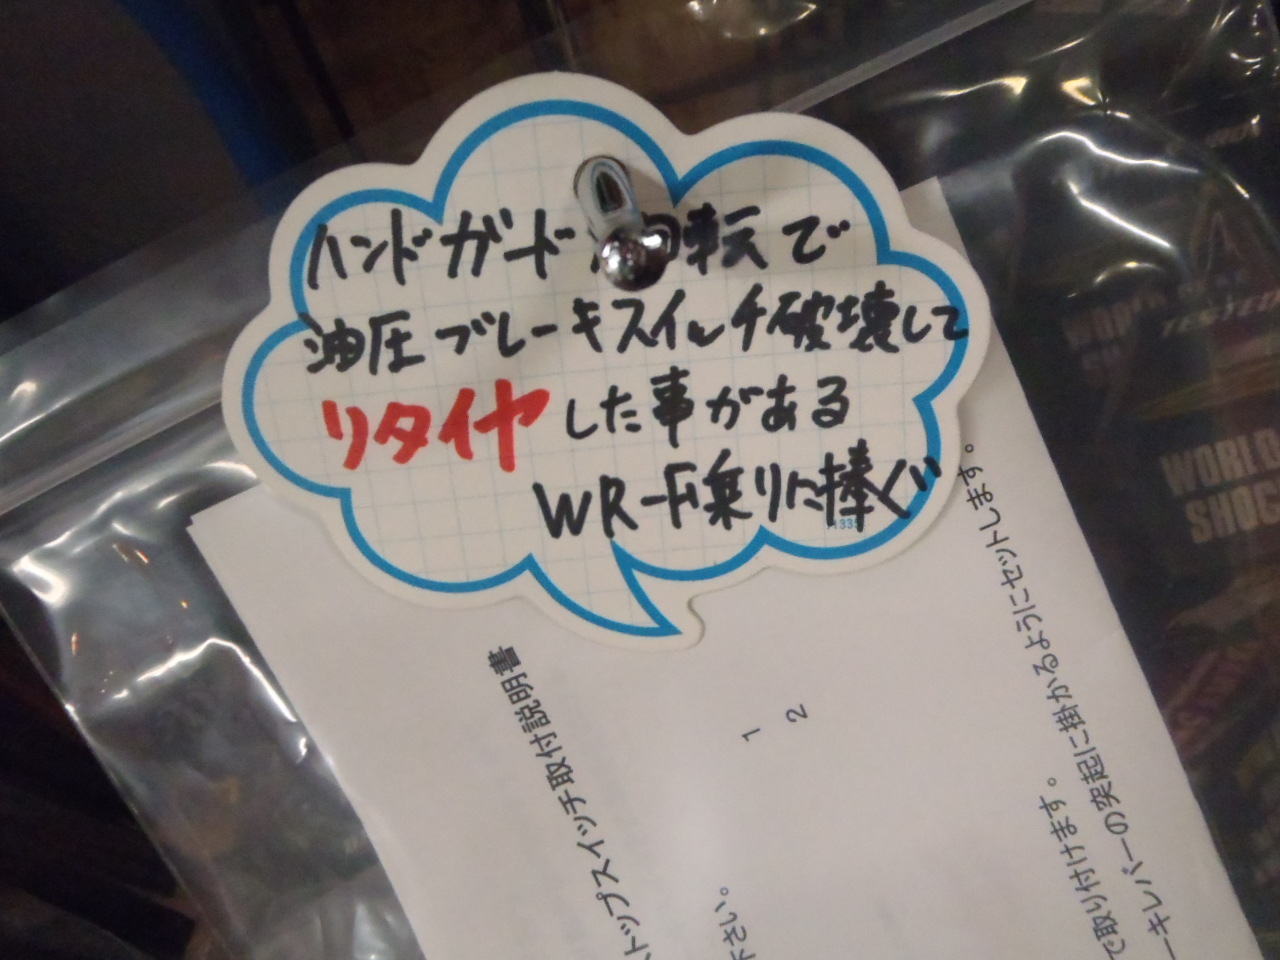 ハンドガード 回転で
油圧ブレーキスイッチ破壊して
リタイヤした事がある
WR-F乗りに捧ぐ
トップスイッチ取付説明書
1
2
下さい。
で取り付けます。
ーキレバーの突起に掛かるようにセットします。
WORLD
SHOC